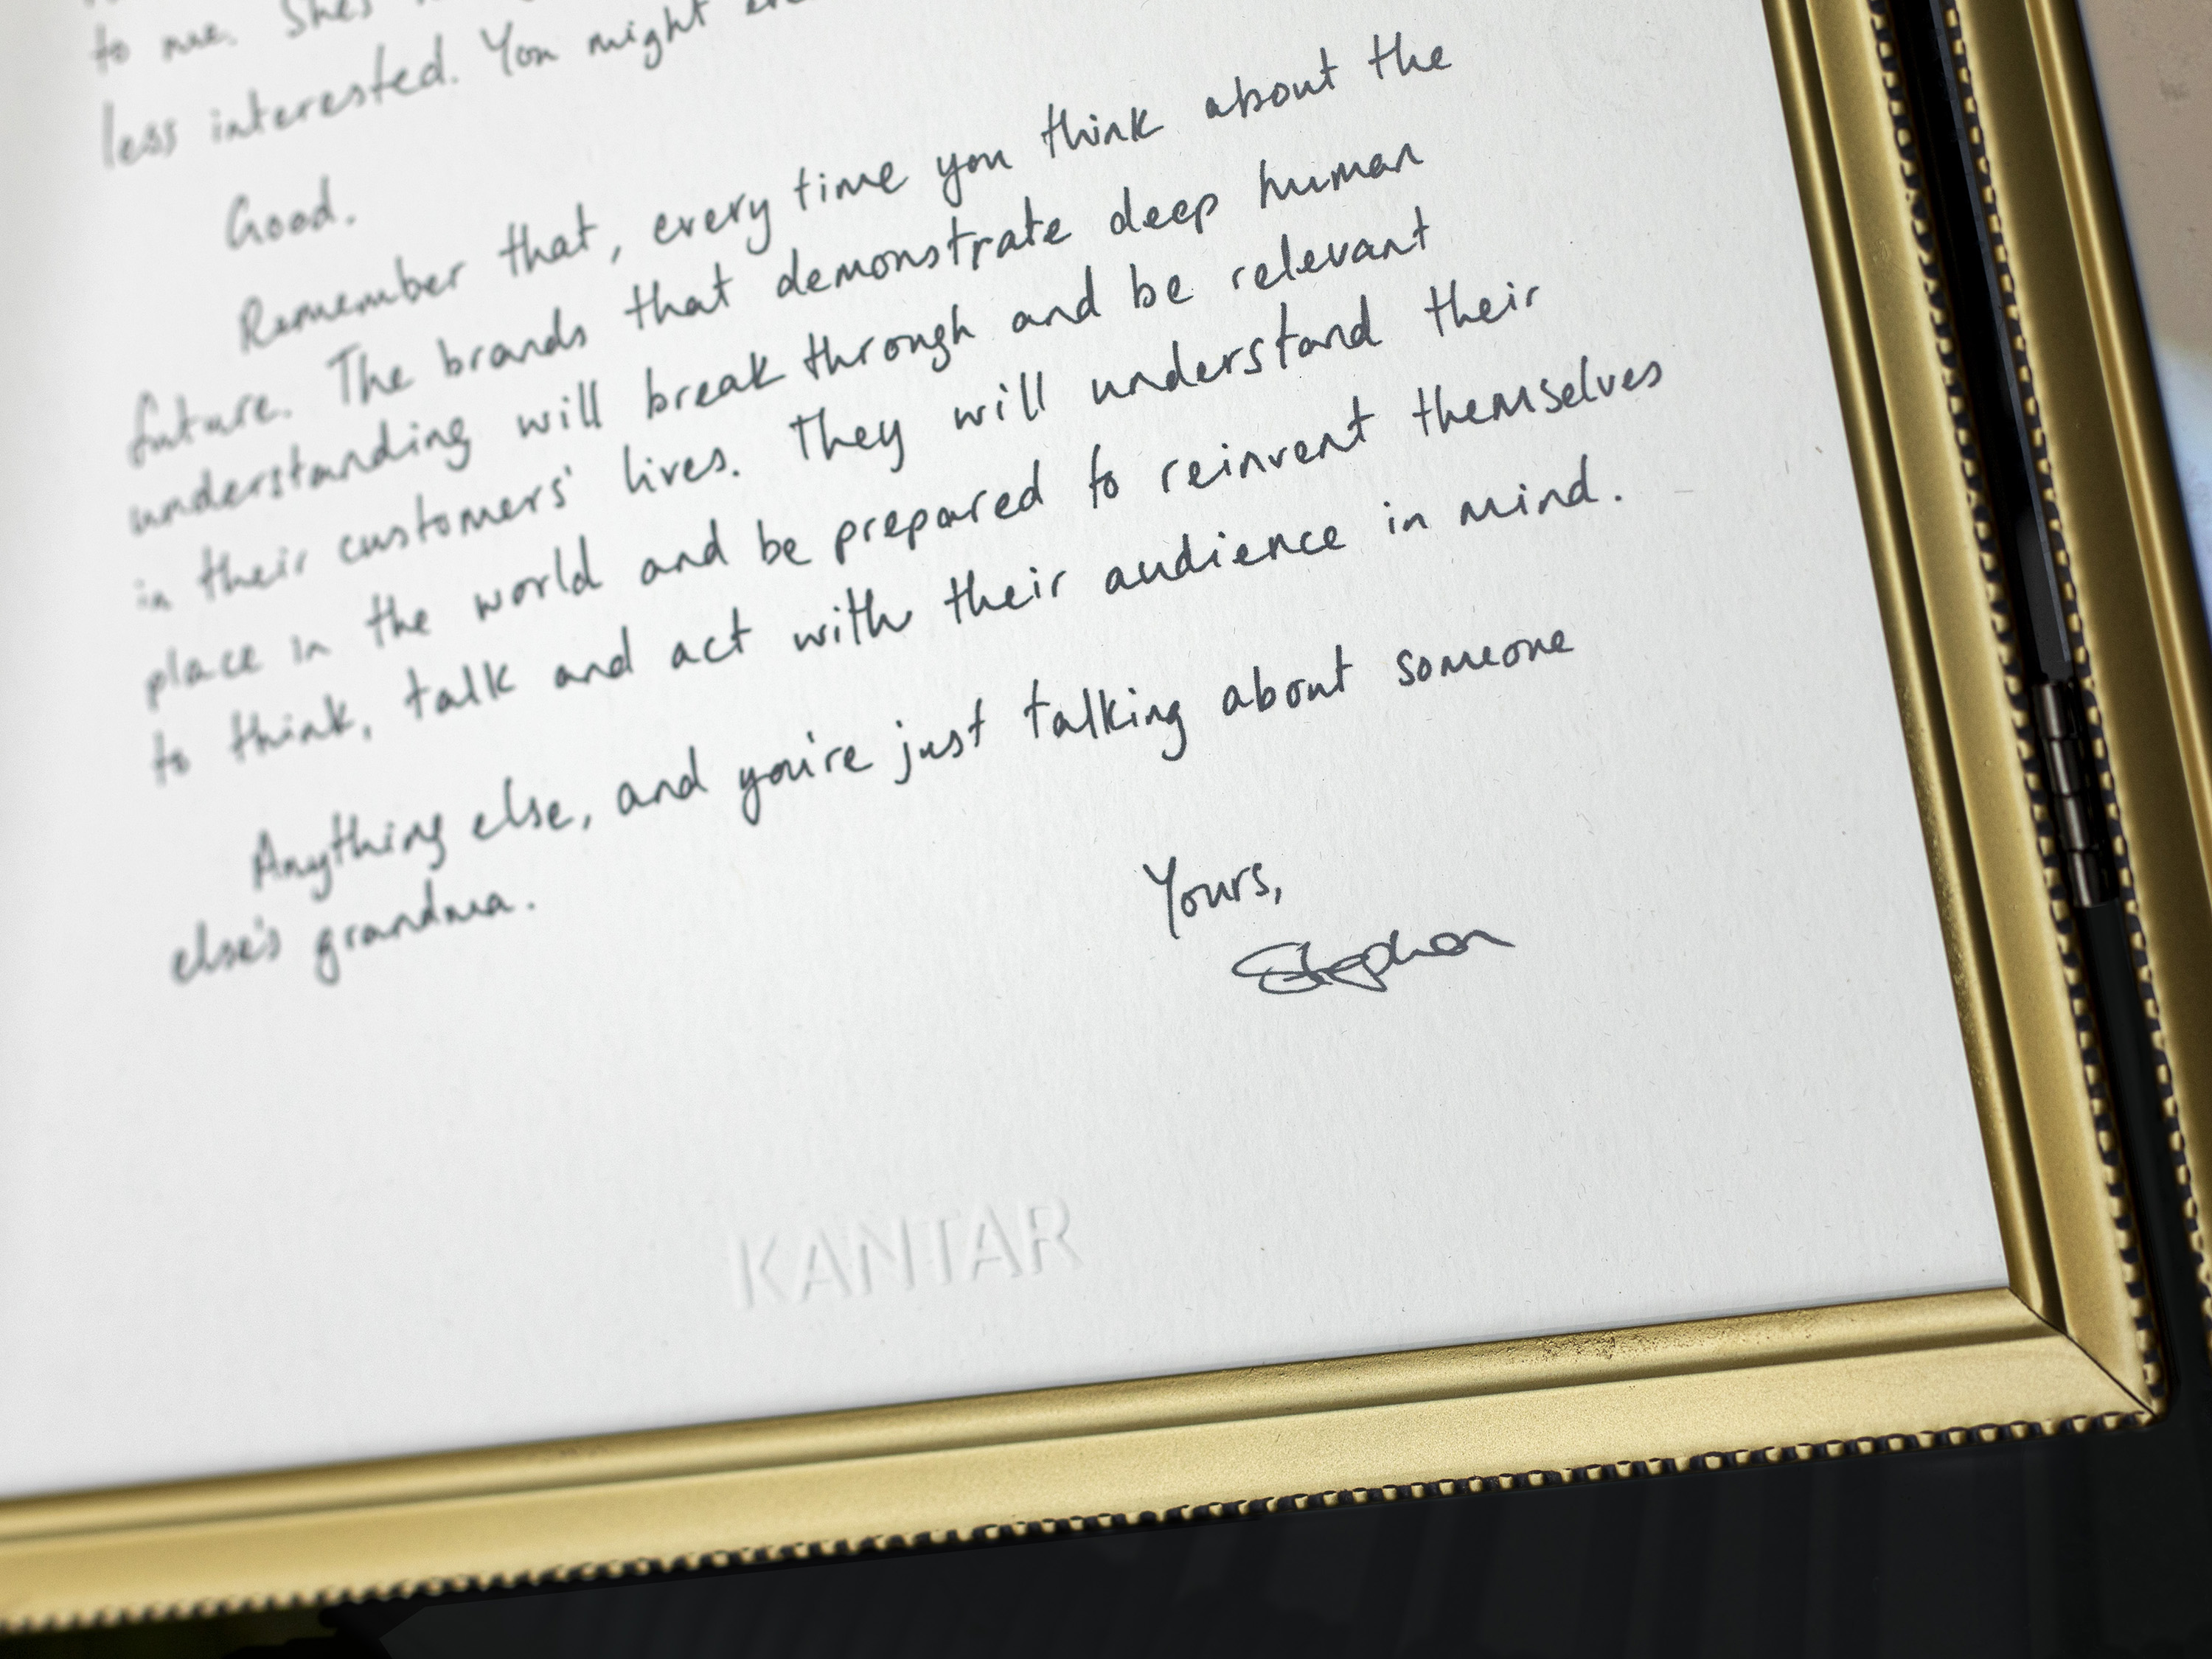 to me. She's
less interested. You might
Good.
Remember that, every time you think about the
future. The brands that demonstrate deep human
understanding will break through and be relevant
in their customers' lives. They will understand their
place in the world and be prepared to reinvent themselves
to think, talk and act with their audience in mind.
Anything else, and you're just talking about someone
else's grandma.
Yours,
Stephen
KANTAR